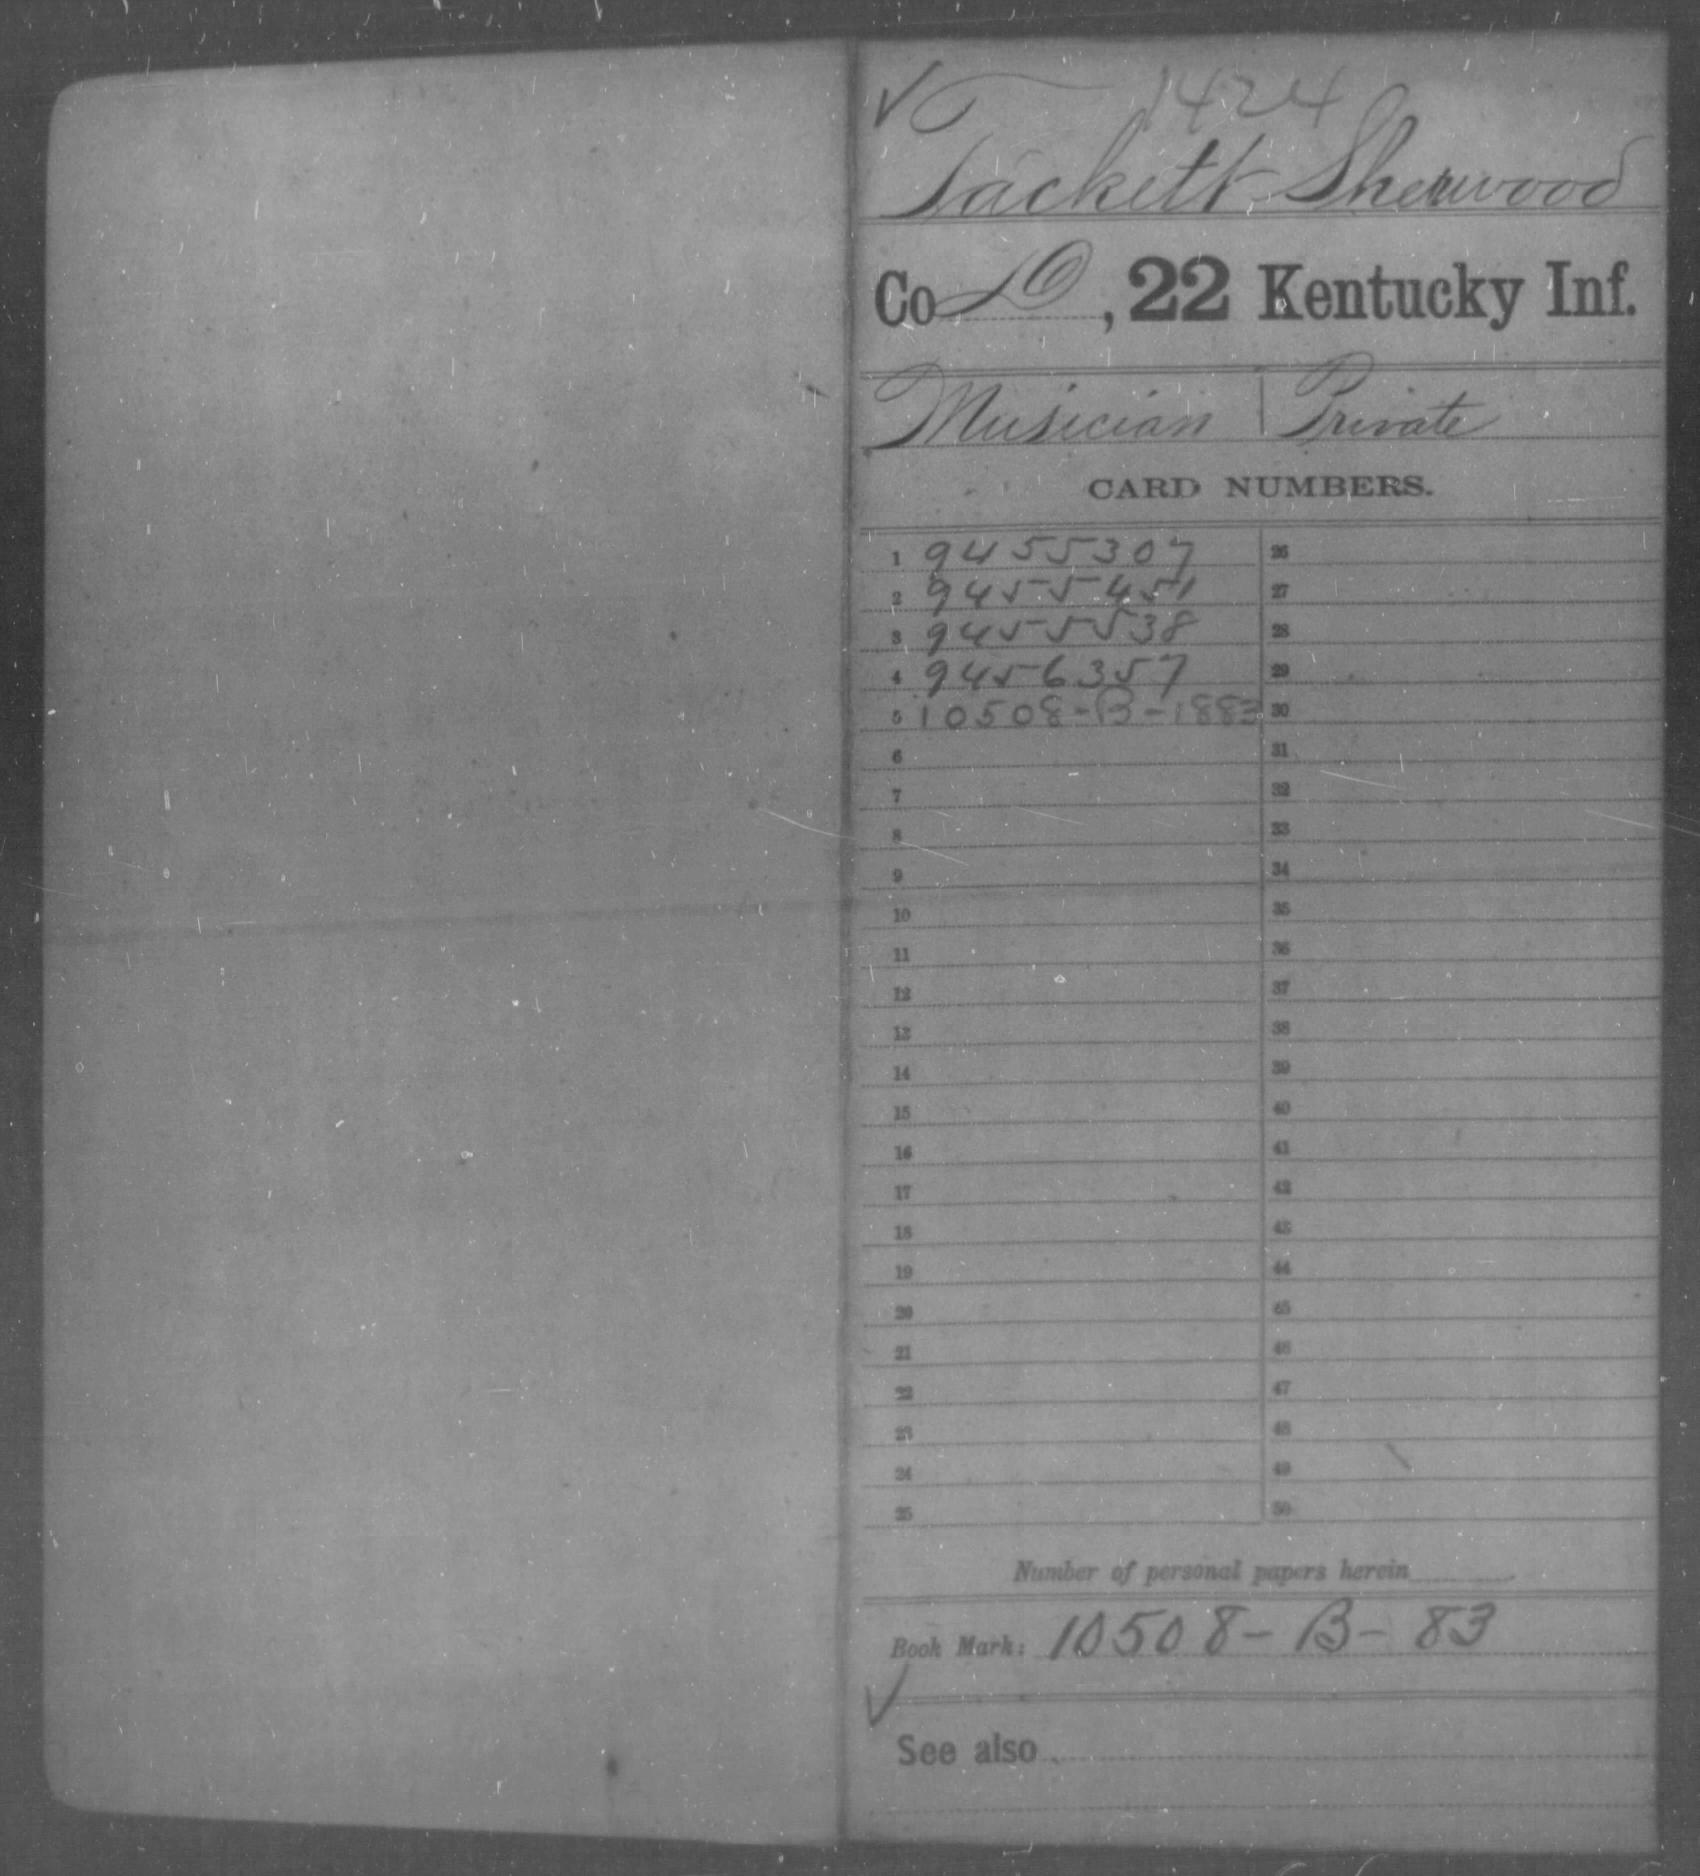 1424
Tackett Sherwood
Co D, 22 Kentucky Inf.
Musician | Private
CARD NUMBERS.
1 9455307
2 9455451
3 9455538
4 9456357
5 10508-B-1883
6
7
8
9
10
11
12
13
14
15
16
17
18
19
20
21
22
23
24
25
26
27
28
29
30
31
32
33
34
35
36
37
38
39
40
41
42
43
44
45
46
47
48
49
50
Number of personal papers herein
Book Mark: 10508-B-83
See also